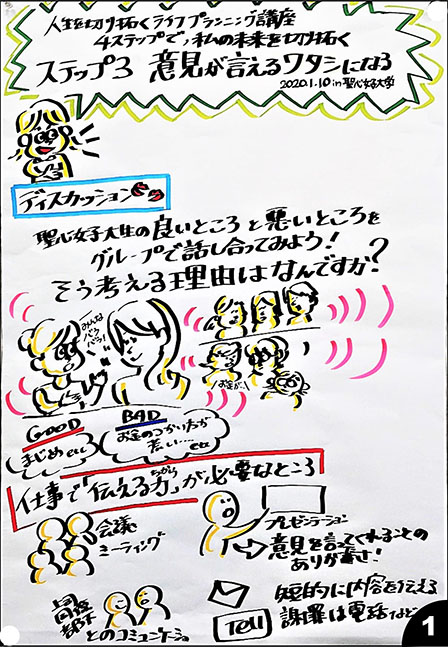 人生を切り拓くライフプランニング講座
4ステップで、私の未来を切り拓く
ステップ3 意見が言えるワタシになる
2020.1.10 in 聖心女子大学
ディスカッション
聖心女子大生の良いところと悪いところを
グループで話し合ってみよう！
そう考える理由はなんですか？
みんな
バラ
バラ！
お金が…
GOOD
まじめ etc
BAD
お金のつかい方が
荒い…… etc
ちから
仕事で「伝える力」が必要なところ
会議
ミーティング
プレゼンテーション
意見を言ってくれることの
ありが革さ！
部下
とのコミュニケーション
Tell
短的に内容を伝える
謝罪は電話など
1